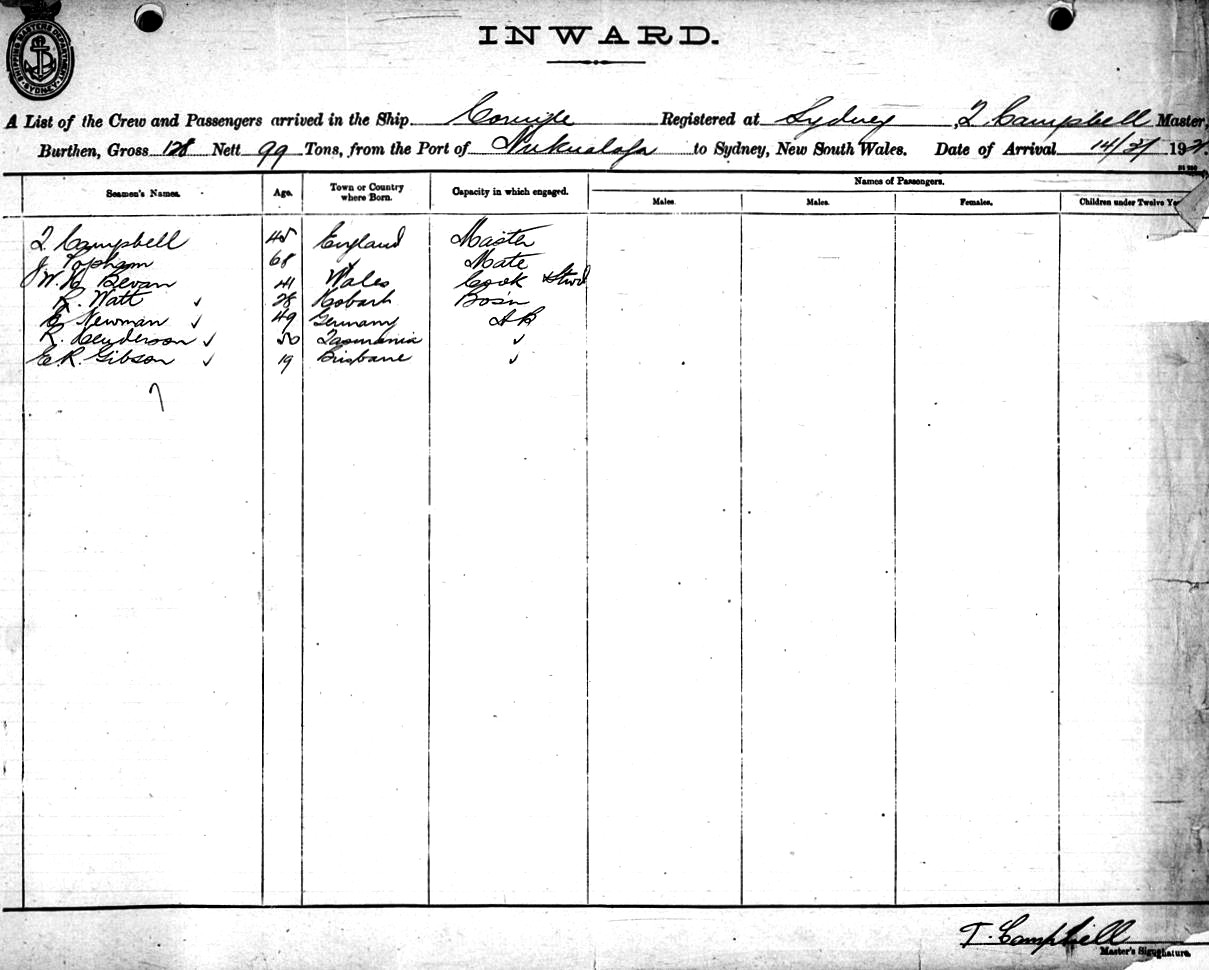 SHIPPING MASTERS DEPARTMENT SYDNEY
INWARD.
A List of the Crew and Passengers arrived in the Ship Registered at Sydney, T Campbell Master,
Burthen, Gross 128 Nett 99 Tons, from the Port of Nukualofa to Sydney, New South Wales. Date of Arrival 14/3/ 192
Seamen's Names. Age. Town or Country where Born. Capacity in which engaged. Names of Passengers.
Males. Males. Females. Children under Twelve
T Campbell 45 England Master
J. Topham 68 ✓ Mate
W. H. Bevan 41 Wales Cook & Stwd
R. Watt ✓ 28 Hobart Bosn
Newman ✓ 49 Germany AB
R. Henderson ✓ 50 Tasmania ✓
E. R. Gibson ✓ 19 Brisbane ✓
7
T. Campbell
Master's Signghature.